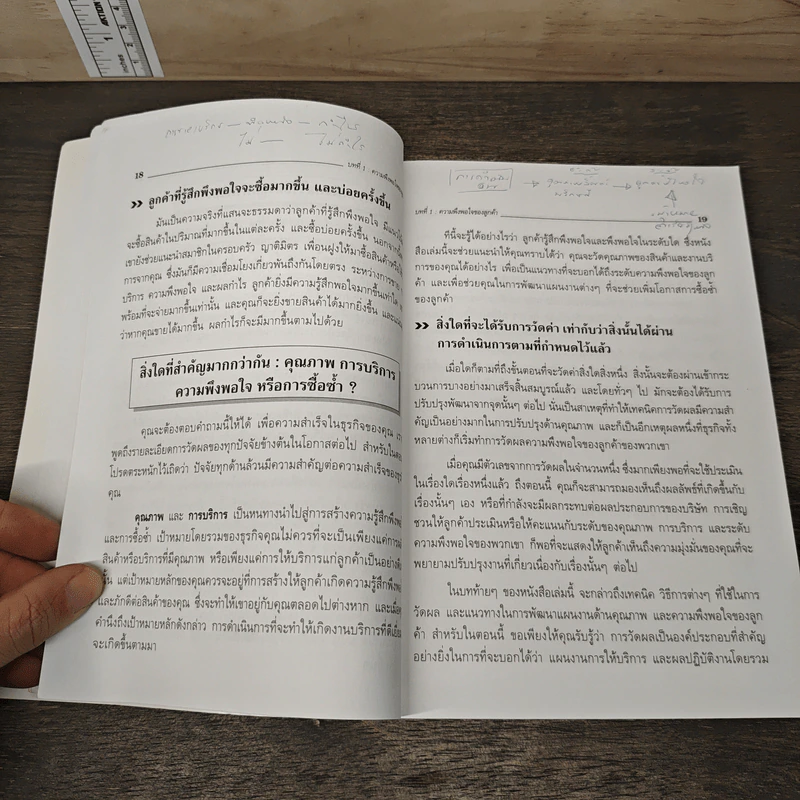 18
บทที่ 1 : ความพึงพอใจ
ลูกค้าที่รู้สึกพึงพอใจจะซื้อมากขึ้น และบ่อยครั้งขึ้น
มันเป็นความจริงที่แสนจะธรรมดาว่าลูกค้าที่รู้สึกพึงพอใจ
จะซื้อสินค้าในปริมาณที่มากขึ้นในแต่ละครั้ง และซื้อบ่อยครั้งขึ้น
เขายังช่วยแนะนำสมาชิกในครอบครัว ญาติมิตร เพื่อนฝูงให้มาซื้อสินค้า
การจากคุณ ซึ่งมันก็มีความเชื่อมโยงเกี่ยวพันถึงกันโดยตรง ระหว่างการ
บริการ ความพึงพอใจ และผลกำไร ลูกค้ายิ่งมีความรู้สึกพึงพอใจมากขึ้นเท่าใด
พร้อมที่จะจ่ายมากขึ้นเท่านั้น และคุณก็จะยิ่งขายสินค้าได้มากยิ่งขึ้น
ว่าหากคุณขายได้มากขึ้น ผลกำไรก็จะมีมากขึ้นตามไปด้วย
สิ่งใดที่สำคัญมากกว่ากัน : คุณภาพ การบริการ
ความพึงพอใจ หรือการซื้อซ้ำ ?
คุณจะต้องตอบคำถามนี้ให้ได้ เพื่อความสำเร็จในธุรกิจของคุณ
พูดถึงรายละเอียดการวัดผลของทุกปัจจัยข้างต้นในโอกาสต่อไป สำหรับในตอน
โปรดตระหนักไว้เถิดว่า ปัจจัยทุกด้านล้วนมีความสำคัญต่อความสำเร็จของธุร
คุณ
คุณภาพ และ การบริการ เป็นหนทางนำไปสู่การสร้างความรู้สึกพึงพอ
และการซื้อซ้ำ เป้าหมายโดยรวมของธุรกิจคุณไม่ควรที่จะเป็นเพียงแค่การ
สินค้าหรือบริการที่มีคุณภาพ หรือเพียงแค่การให้บริการแก่ลูกค้าเป็นอย่าง
นั้น แต่เป้าหมายหลักของคุณควรจะอยู่ที่การสร้างให้ลูกค้าเกิดความรู้สึกพึง
และภักดีต่อสินค้าของคุณ ซึ่งจะทำให้เขาอยู่กับคุณตลอดไปต่างหาก และเมื่อ
คำนึงถึงเป้าหมายหลักดังกล่าว การดำเนินการที่จะทำให้เกิดงานบริการที่ดีเยี่ยม
จะเกิดขึ้นตามมา
บทที่ 1 : ความพึงพอใจของลูกค้า
19
ที่นี้จะรู้ได้อย่างไรว่า ลูกค้ารู้สึกพึงพอใจและพึงพอใจในระดับใด ซึ่งหนัง
สือเล่มนี้จะช่วยแนะนำให้คุณทราบได้ว่า คุณจะวัดคุณภาพของสินค้าและงานบริ
การของคุณได้อย่างไร เพื่อเป็นแนวทางที่จะบอกได้ถึงระดับความพึงพอใจของลูก
ค้า และเพื่อช่วยคุณในการพัฒนาแผนงานต่างๆ ที่จะช่วยเพิ่มโอกาสการซื้อซ้ำ
ของลูกค้า
สิ่งใดที่จะได้รับการวัดค่า เท่ากับว่าสิ่งนั้นได้ผ่าน
การดำเนินการตามที่กำหนดไว้แล้ว
เมื่อใดก็ตามที่ถึงขั้นตอนที่จะวัดค่าสิ่งใดสิ่งหนึ่ง สิ่งนั้นจะต้องผ่านเข้ากระ
บวนการบางอย่างมาเสร็จสิ้นสมบูรณ์แล้ว และโดยทั่วๆ ไป มักจะต้องได้รับการ
ปรับปรุงพัฒนาจากจุดนั้นๆ ต่อไป นั่นเป็นสาเหตุที่ทำให้เทคนิคการวัดผลมีความสำ
คัญเป็นอย่างมากในการปรับปรุงด้านคุณภาพ และก็เป็นอีกเหตุผลหนึ่งที่ธุรกิจทั้ง
หลายต่างก็เริ่มทำการวัดผลความพึงพอใจของลูกค้าของพวกเขา
เมื่อคุณมีตัวเลขจากการวัดผลในจำนวนหนึ่ง ซึ่งมากเพียงพอที่จะใช้ประเมิน
ในเรื่องใดเรื่องหนึ่งแล้ว ถึงตอนนี้ คุณก็จะสามารถมองเห็นถึงผลลัพธ์ที่เกิดขึ้นกับ
เรื่องนั้นๆ เอง หรือที่กำลังจะมีผลกระทบต่อผลประกอบการของบริษัท การเชิญ
ชวนให้ลูกค้าประเมินหรือให้คะแนนกับระดับของคุณภาพ การบริการ และระดับ
ความพึงพอใจของพวกเขา ก็พอที่จะแสดงให้ลูกค้าเห็นถึงความมุ่งมั่นของคุณที่จะ
พยายามปรับปรุงงานที่เกี่ยวเนื่องกับเรื่องนั้นๆ ต่อไป
ในบทท้ายๆ ของหนังสือเล่มนี้ จะกล่าวถึงเทคนิค วิธีการต่างๆ ที่ใช้ในการ
วัดผล และแนวทางในการพัฒนาแผนงานด้านคุณภาพ และความพึงพอใจของลูก
ค้า สำหรับในตอนนี้ ขอเพียงให้คุณรับรู้ว่า การวัดผลเป็นองค์ประกอบที่สำคัญ
อย่างยิ่งในการที่จะบอกได้ว่า แผนงานการให้บริการ และผลปฏิบัติงานโดยรวม